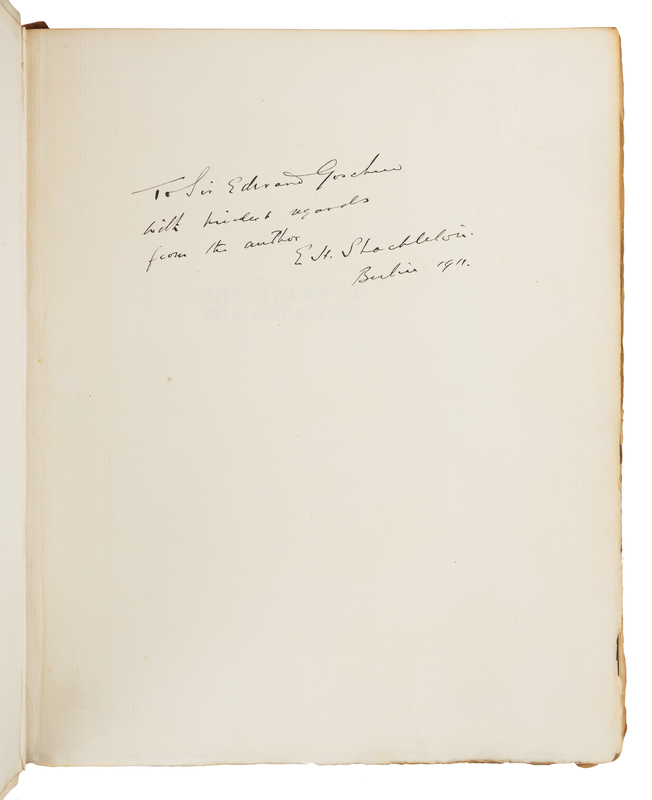 To Sir Edward Goschen
with kindest regards
from the author
E H. Shackleton.
Berlin 1911.
THE HEART OF
THE ANTARCTIC